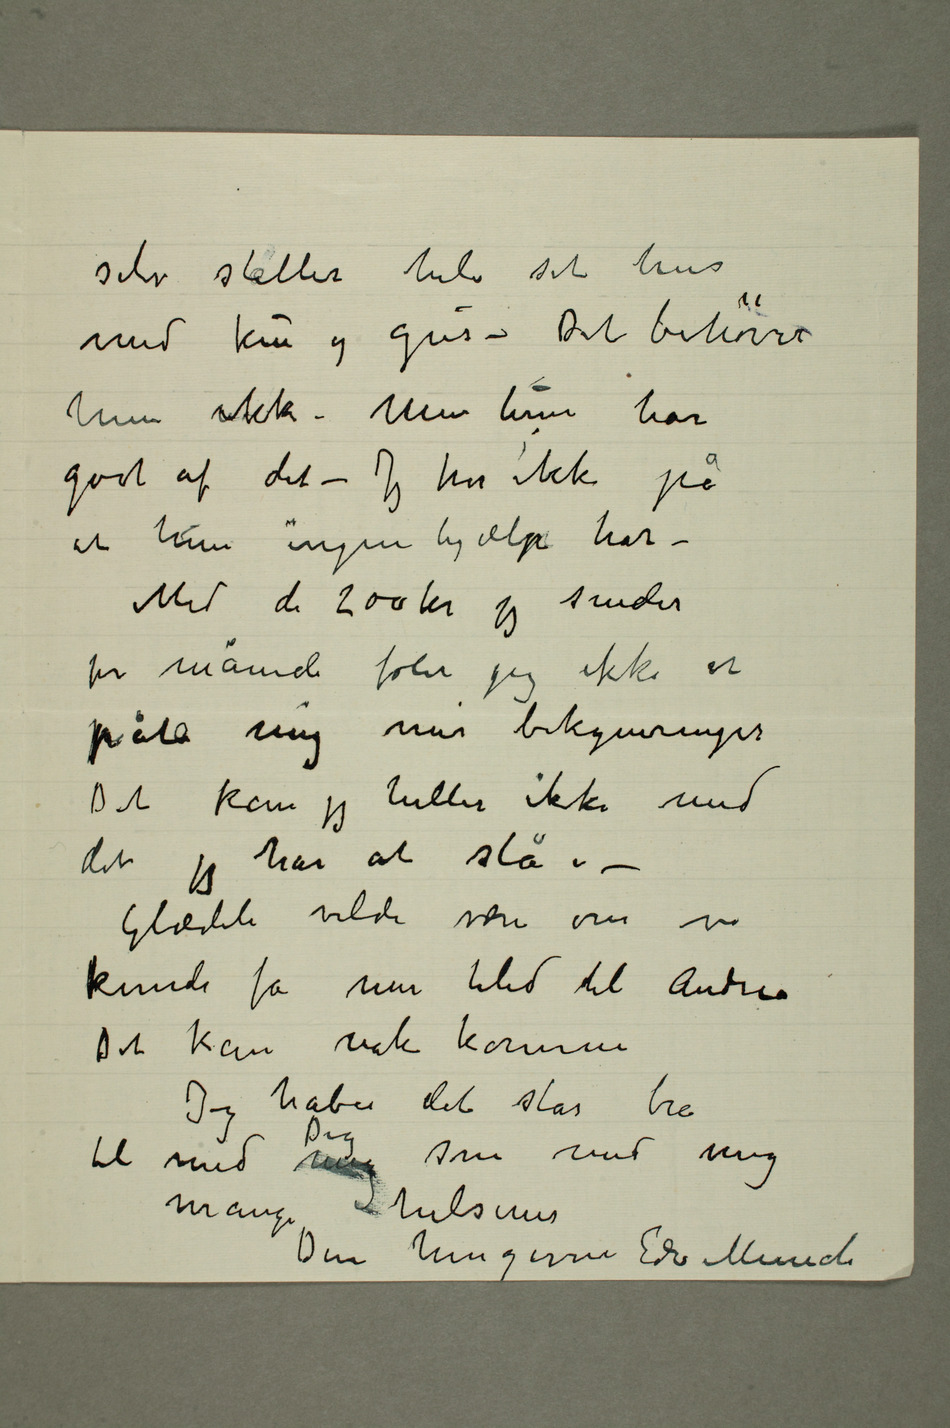 selv steller hele sit hus
med ku og gris – Det behöver
hun ikke – Men hun har
godt af det – Jeg tror ikke på
at hun ingen hjælp har –
Med de 200 kr jeg sender
pr måned føler jeg ikke at
påta mig mer bekymringer
Det kan jeg heller ikke med
det jeg har at stå i –
Glædeli vilde være om vi
kunde fa mer tilid til Andrea
Det kan nok komme
Jeg haber det star bra
til med Dig som med mig
mange hilsener
Din hengivne Edv Munch